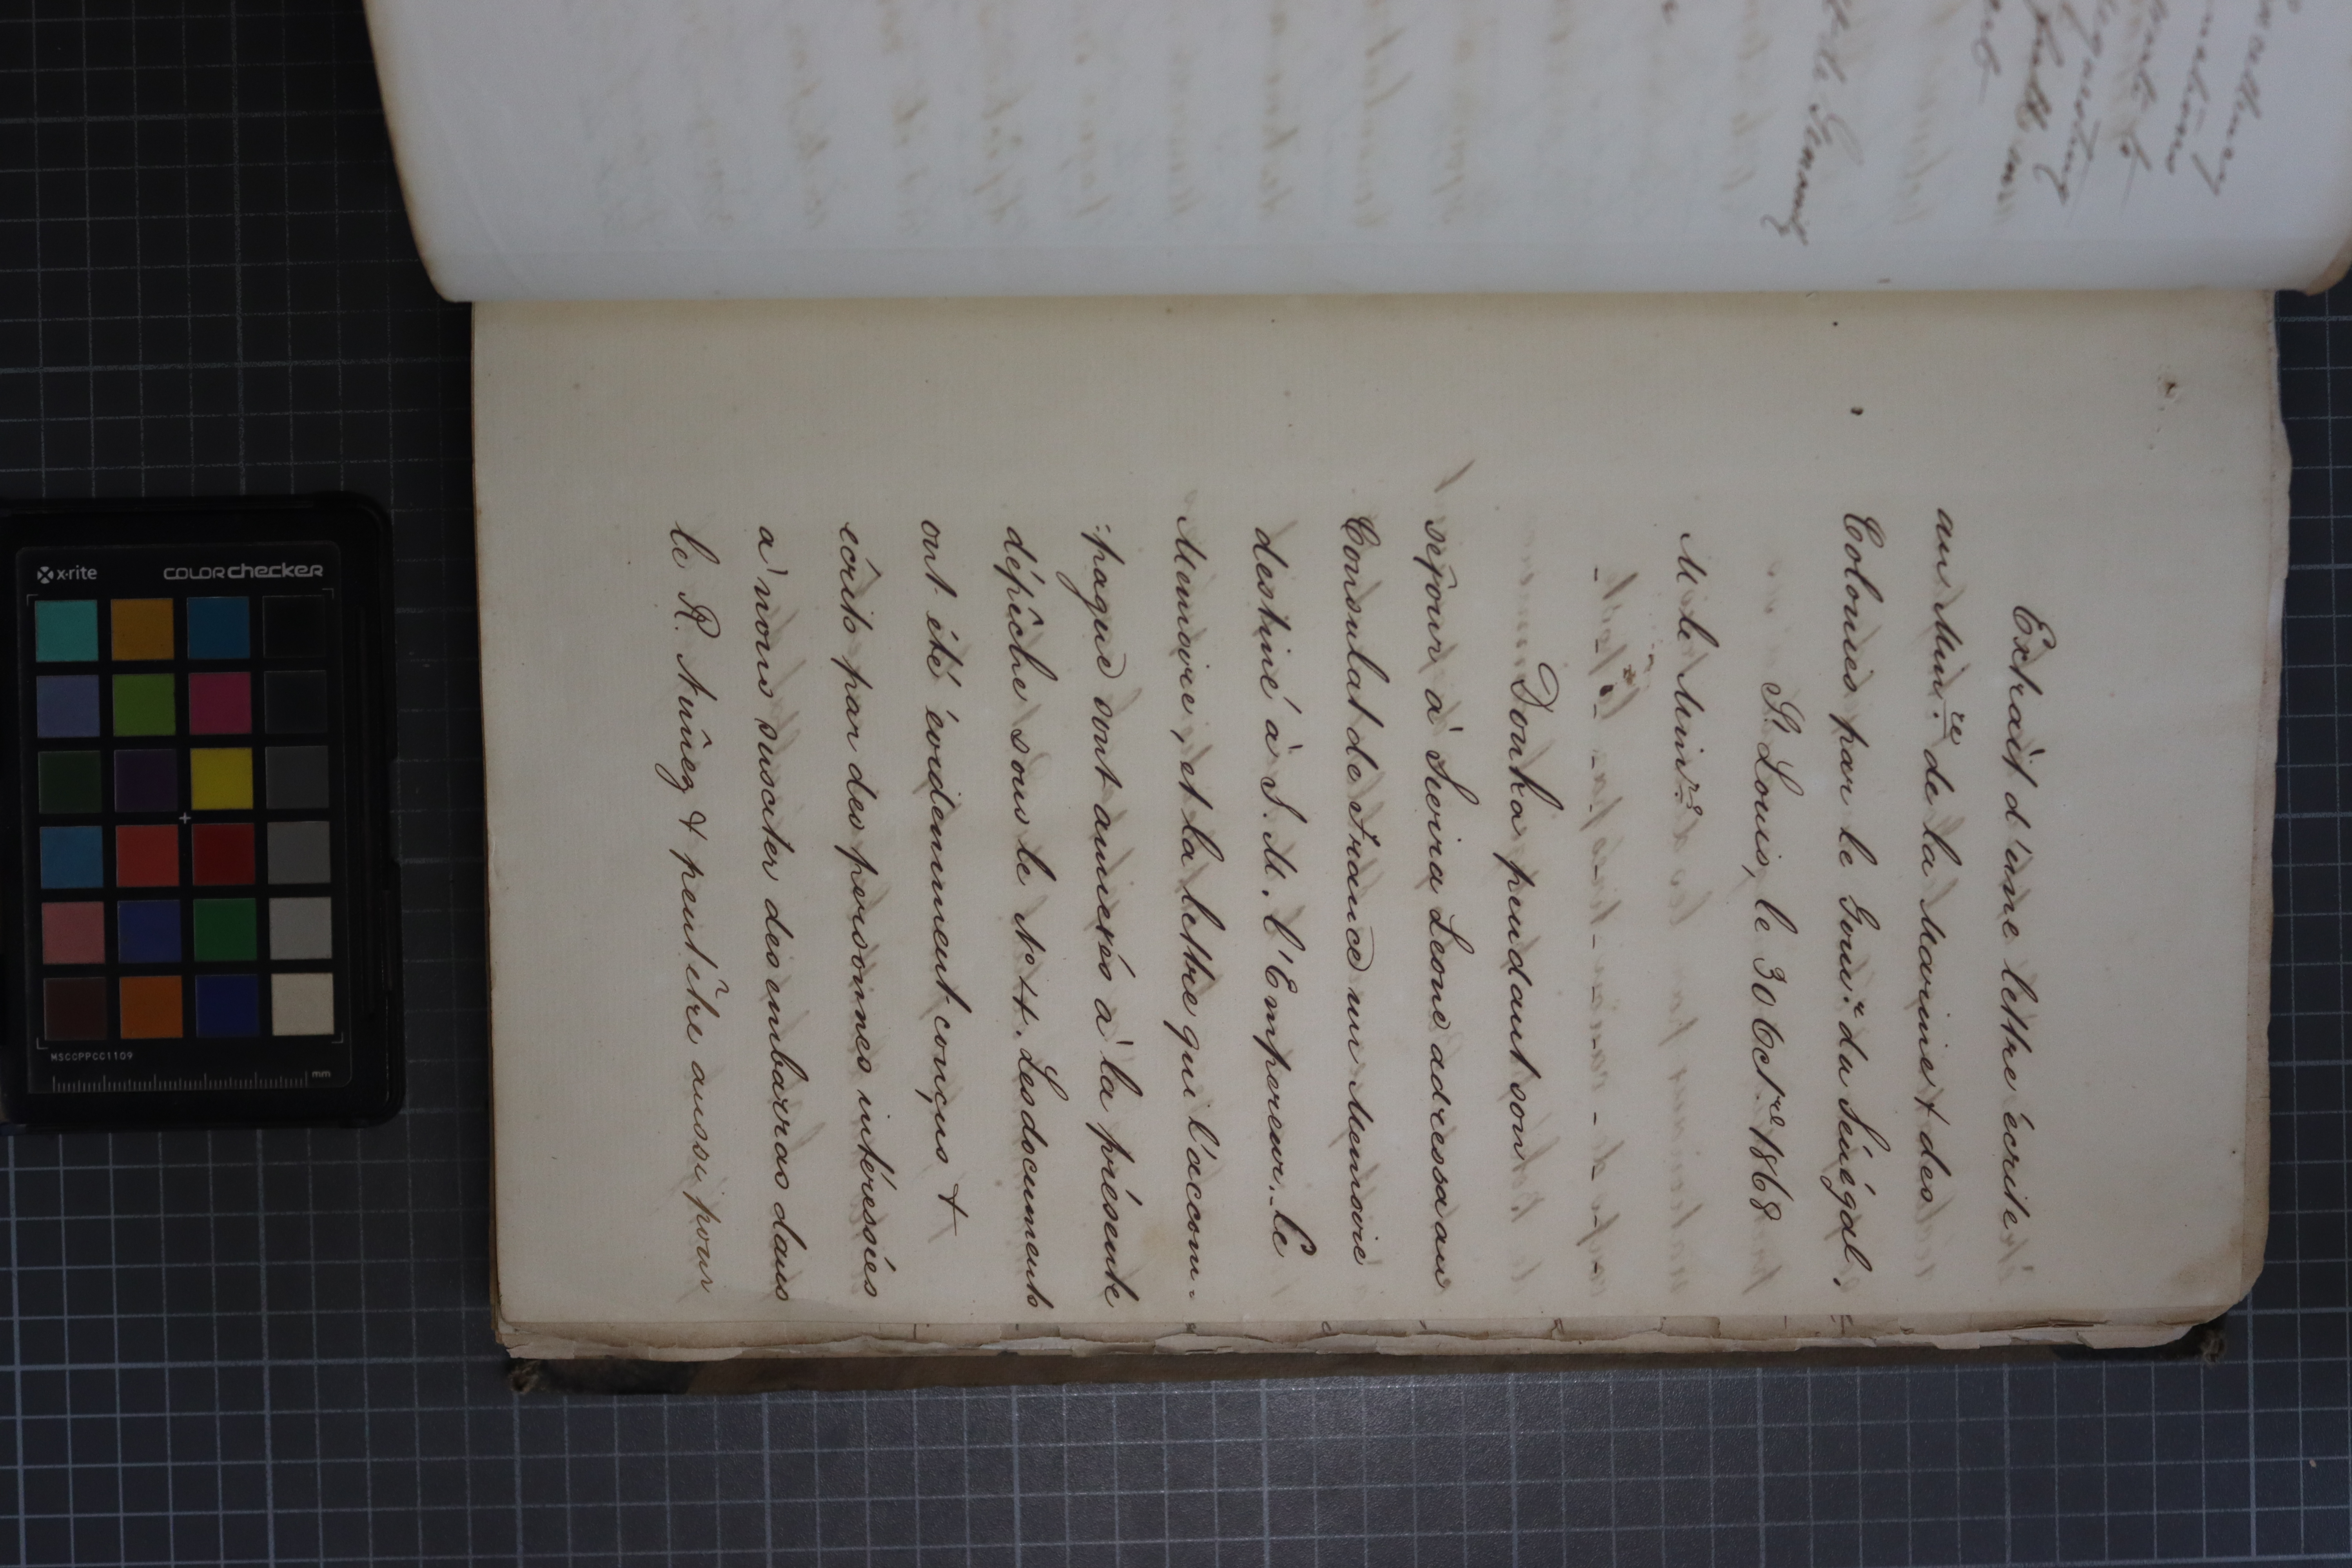 Extrait d'une lettre écrite
au Min.re de la Marine & des
Colonies par le Gouv.r du Sénégal.
St Louis, le 30 Octre 1868
M. le Minre
Douka pendant son
séjour à Sierra Leone adressa au
Consulat de France un Memoire
destiné à S. M. l'Empereur. Le
Memoire, et la lettre qui l'accom-
:pagne sont annexés à la présente
dépêche sous le No 44. Les documents
ont été évidemment conçus &
écrits par des personnes intéressées
à nous susciter des embarras dans
le R. Nûnez & peut être aussi pour
x-rite
colorchecker
MSCCPPCC1109
mm